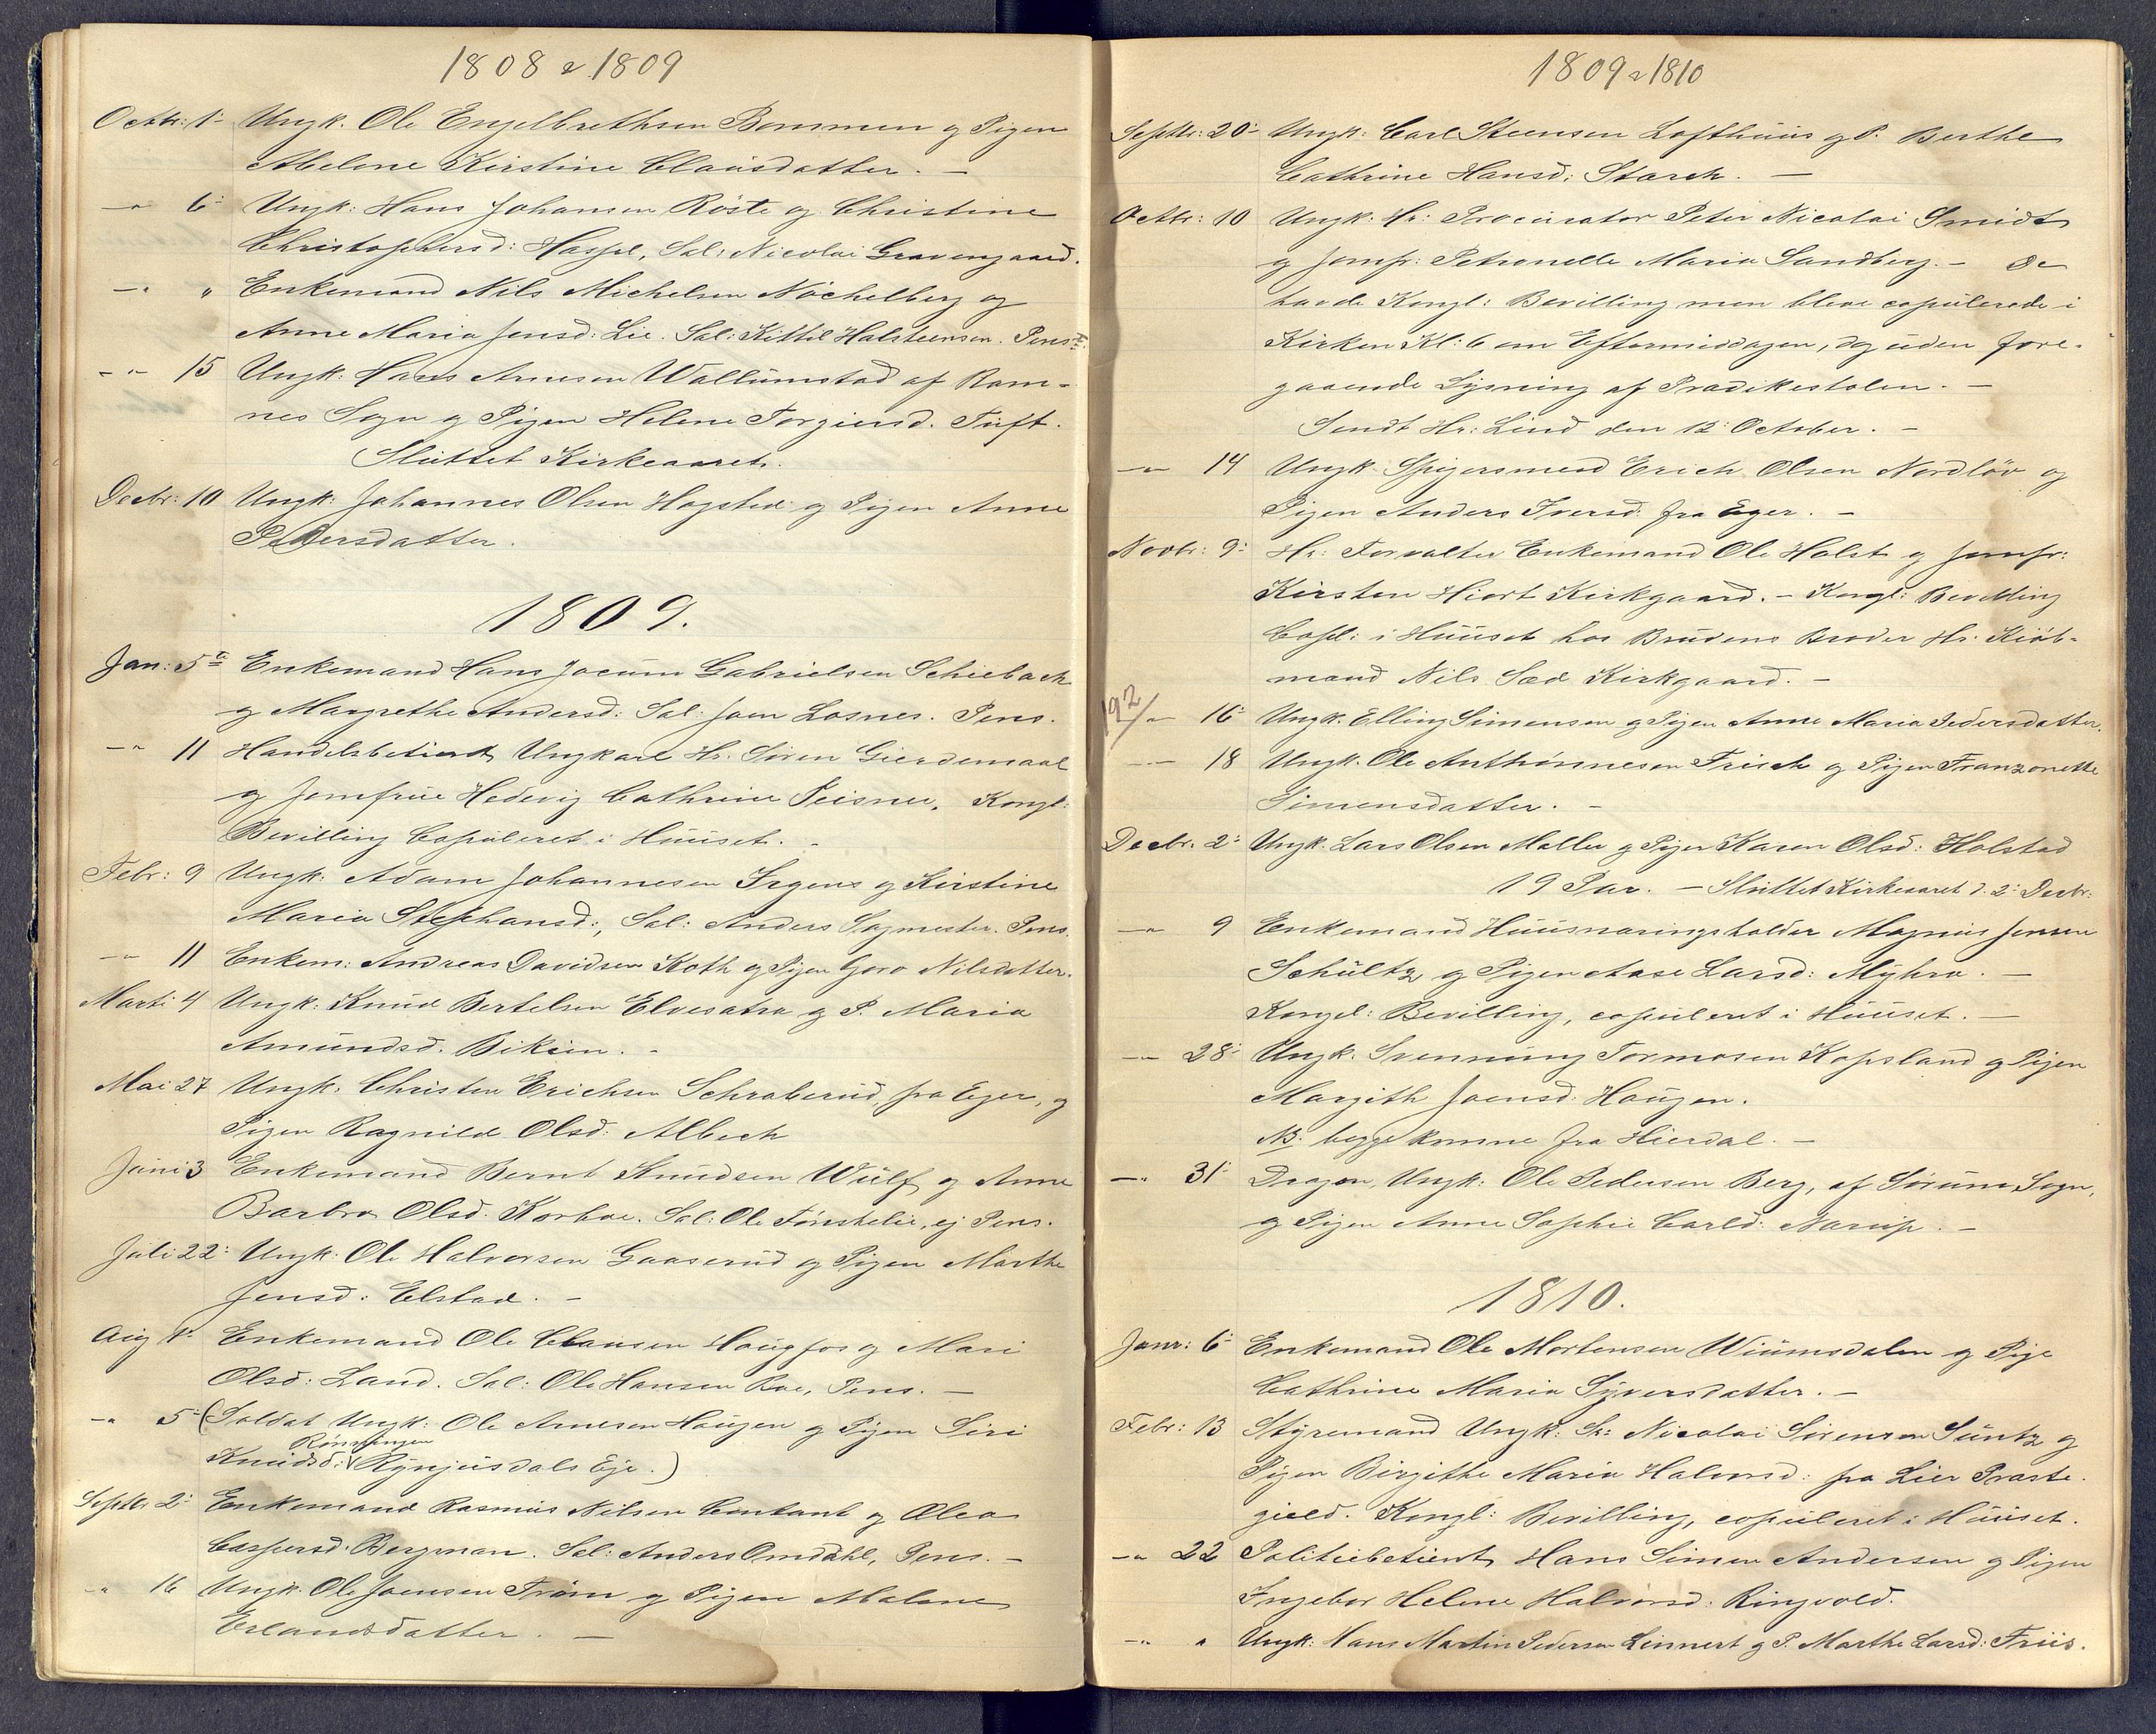 1808 & 1809
Octbr: 1- Ungk. Ole Engelbrethsen Bommen og Pigen
Abelone Kirstine Clausdatter. —
—" 6- Ungk: Hans Johansen Röste og Christine
Christophersd: Hassel, Sal: Nicolai Gravengaard.
—" " Enkemand Nils Michelsen Nöchelberg og
Anne Maria Jensd: Lie. Sal: Kittil Halsteensen. Pens.
—" 15 Ungk: Hans Arnesen Wallumstad af Ram-
nes Sogn og Pigen Helene Torgiersd. Tuft.
Sluttet Kirkeaaret.
Decbr: 10 Ungk: Johannes Olsen Hagsted og Pigen Anne
Pedersdatter.
1809.
Jan: 5te Enkemand Hans Jocum Gabrielsen Schiebach
og Margrethe Andersd: Sal: Joen Losnes. Pens.
—" 11 Handelsbetient Ungkarl Hr. Sören Gierdemaal
og Jomfrue Hedevig Cathrine Peisner. Kongl:
Bevilling Copuleret i Huuset. -
Febr: 9 Ungk: Adam Johannesen Irgens og Kirstine
Maria Stephansd:, Sal: Anders Sagmester. Pens.
—" 11 Enkem: Andreas Davidsen Koth og Pigen Goro Nilsdatter.
Marti 4 Ungk: Knud Bertelsen Elvesatra og P. Maria
Amundsd. Bikien. -
Mai 27 Ungk. Christen Erichsen Schraberud, fra Eger, og
Pigen Ragnild Olsd: Albech
Juni 3 Enkemand Bernt Knudsen Wulf og Anne
Barbro Olsd. Korboe. Sal: Ole Fönskelie, ej Pens.
Juli 22- Ungk: Ole Halvorsen Gaaserud og Pigen Marthe
Jensd: Elstad. -
Aug 1- Enkemand Ole Clausen Haugfos og Mari
Olsd: Land. Sal: Ole Hansen Roe, Pens. —
—" 5- (Soldat Ungk: Ole Arnesen Haugen og Pigen Siri
Rönningen
Knudsd: Rynjusdals Eje.)
Septbr 2- Enkemand Rasmus Nilsen Contant og Olea
Caspersd. Bergman. Sal: Anders Omdahl, Pens. —
—" 16 Ungk. Ole Joensen Tröm og Pigen Malene
Erlandsdatter. —
1809 & 1810
Septbr: 20- Ungk: Carl Steensen Lofthuus og P. Berthe
Cathrine Hansd: Starch. —
Octbr: 10 Ungk: Hr: Procurator Peter Nicolai Smidt
og Jomfr: Petronelle Maria Sandberg. - De
havde Kongl: Bevilling men bleve copulerede i
Kirken Kl: 6 om Eftermiddagen, dog uden fore-
gaaende Lysning af Prædikestolen. —
Sendt Hr: Lind den 12 October. -
—" 14 Ungk. Spigersmed Erich Olsen Nordlöv og
Pigen Anders Iversd. fra Eger. —
Novbr: 9- Hr: Forvalter Enkemand Ole Holst og Jomfr:
Kirsten Hiort Kirkgaard. - Kongl: Bevilling
Copl: i Huuset hos Brudens Broder Hr. Kiöb-
mand Nils Sæd Kirkgaard. -
192/
—" 16- Ungk. Elling Simensen og Pigen Anne Maria Pedersdatter.
—" 18 Ungk. Ole Anthönnesen Frisch og Pigen Franzonette
Simensdatter. -
Decbr. 2- Ungk. Lars Olsen Moller og Pigen Karen Olsd: Holstad
19 Par. — Sluttet Kirkeaaret d. 2- Decbr:
—" 9 Enkemand Huusnæringsholder Magnus Jensen
Schultz og Pigen Aase Larsd: Myhra. —
Kongel: Bevilling, copuleret i Huuset. —
—" 28- Ungk. Svenning Tormosen Kopsland og Pigen
Margith Joensd: Haugen.
NB: begge komne fra Hierdal. —
—" 31- Dragon, Ungk: Ole Pedersen Berg, af Sörum Sogn,
og Pigen Anne Sophie Carld: Narup. —
1810.
Janr: 6- Enkemand Ole Mortensen Wiumsdalen og Pige
Cathrine Maria Syversdatter. —
Febr: 13 Styremand Ungk: Sr: Nicolai Sörensen Suntz og
Pigen Birgithe Maria Halvorsd: fra Lier Præste-
gield. Kongl: Bevilling, copuleret i Huuset.
—" 22 Politiebetient Hans Simen Andersen og Pigen
Ingebor Helene Halvorsd: Ringvold.
—" " Ungk: Hans Martin Pedersen Linnert og P. Marthe Larsd: Friis.